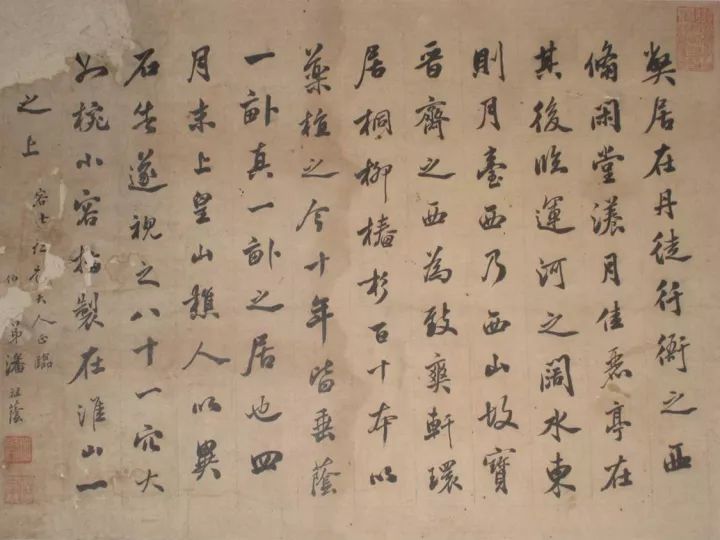 弊居在丹徒行衙之西
翛閑堂漾月佳麗亭在
其後臨運河之闊水東
則月臺西乃西山故寶
晉齋之西為致爽軒環
居桐柳椿杉百十本以
藥植之今十年皆垂蔭
一畝真一畝之居也四
月末上皇山樵人以異
石告遂視之八十一穴大
如椀小容指製在淮山一
之上
仁大人正臨
弟潘祖蔭